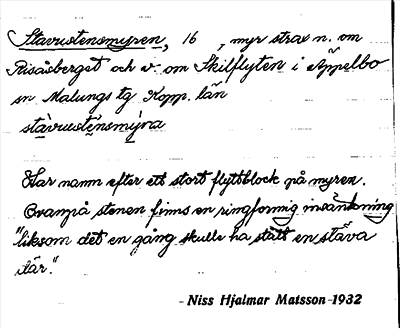 Stavustensmyren, 16 , myr strax n. om
Risåsberget och v. om Skilflyten i Äppelbo
sn Malungs tg Kopp. län
stàvustẹ̀nsmỵra
Har namn efter ett stort flyttblock på myren.
Ovanpå stenen finns en ringformig insänkning
"liksom det en gång skulle ha stått en stäva
där."
- Niss Hjalmar Matsson 1932